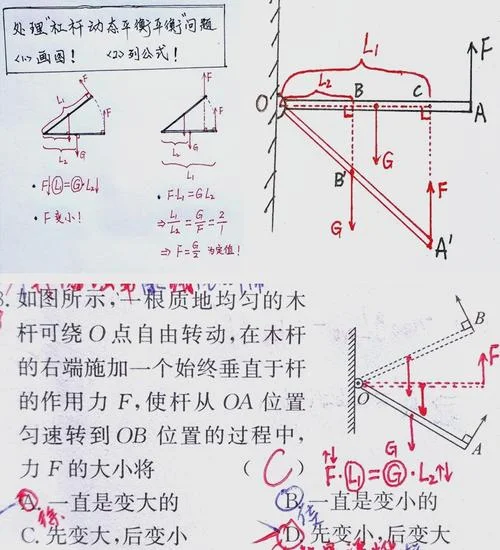 处理"杠杆动态平衡平衡"问题
<1>画图! <2>列公式!
F
L₁
L₂
G
F
L₂
G
L₁
· F(L₁)=(G)L₂↓
· F变小!
· F·L₁=GL₂
⇒ L₁/L₂=G/F=2/1
⇒ F=G/2 为定值!
L₁
L₂
F
O
B
C
A
G
B'
F
G
A'
8.如图所示,一根质地均匀的木
杆可绕O点自由转动,在木杆
的右端施加一个始终垂直于杆
的作用力F,使杆从OA位置
匀速转到OB位置的过程中,
力F的大小将 ( C )
A.一直是变大的 B.一直是变小的
C.先变大,后变小 D.先变小,后变大
B
F
O
G
A
↑↓F·(L₁)=(G)·L₂↑↓